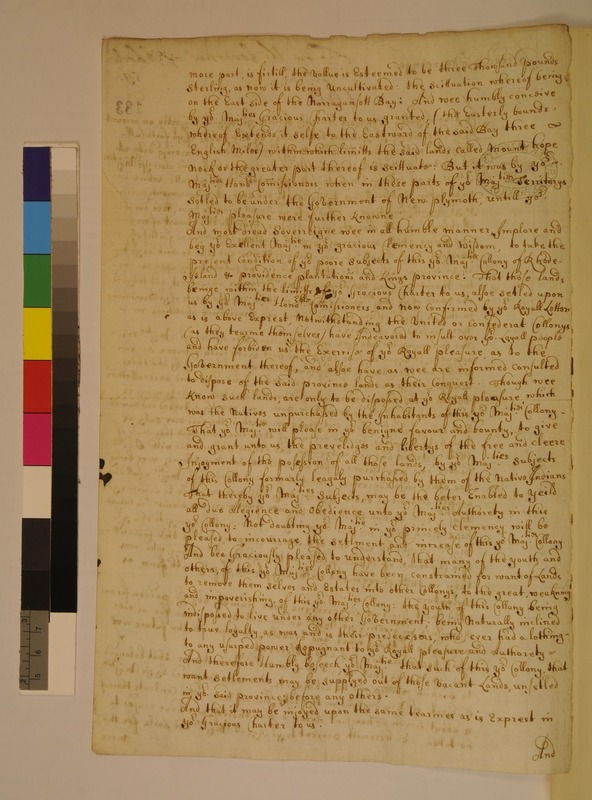 more part, is firtill, the vallue is Esteemed to be three Thowsand pounds
sterling, as now it is being Uncultivated: the scittuation whereof being
on the East side of the Narragansott Bay: And wee humbly conceive
by yo Majties Gracious Charter to us granted, (the Easterly bounds
whereof Extends it selfe to the Eastward of the said Bay three
English Miles) within which limitts the said lands called Mount hope
Neck or the greater part thereof is scittuate: But it was by yor
Majties Honble Comissioners when in these parts of yor Majties Territorys
setled to be under the Government of New plymoth, untill yor
Majties pleasure were further Knowne
And most dread Soverreigne wee in all humble manner Implore and
beg yor Exellent Majtie in yor gracious Clemency and Wisdom, to take the
present Condition of yor poore subjects of this yor Majties Collony of Rhode-
Island & providence plantations and Kings province: That those lands
beinge within the limitts of yor Gracious Charter to us, allsoe setled upon
us by yor Majties Honble Comissioners, and now confirmed by yor Royall Letter
as is above Exprest, Notwithstanding the United or confederat Collonys
(as they tearme themselves) have Indeavored to insult over yor Loyall people
and have forbiden us the Exersise of yor Royall pleasure as to the
Government thereof, and allsoe have, as wee are informed consulted
to dispose of the said province lands as their conquest. Though wee
know such lands are only to be disposed at yor Royall pleasure which
was the Natives unpurchased by the Inhabitants of this yor Majties Collony.
That yor Majtie will please in yor benigne favour and bounty, to give
and grant unto us the previledges and libertys of the free and cleere
Injoyment of the possesion of all those lands, by yor Majties subjects
of this Collony formarly leagaly purchased by them of the Native Indians
That thereby yor Majties subjects, may be the beter Enabled to Yeild
all due Allegience and Obedience unto yor Majties Authorety in this
yor Collony: Not doubting yor Majtie in yor princely Clemency will be
pleased to incourage, the setlment and increase of this yor Majties Collony
And bee Graciously pleased to understand, that many of the youth and
others, of this yor Majties Collony have been constrained for want of Lands
to remove them selves and Estates into other Collonys, to the great weakning
and impoverishing of this yor Majties Collony: the youth of this Collony being
indisposed to live under any other Government: being Naturally inclined
to true loyalty, as was and is their predecessors, who ever had a lothing
to any usurped power Repugnant to yor Royall pleasure and Authorety
And therefore Humbly beseech yor Majtie that such of this yor Collony, that
want setlements may be supplyed out of those vacant Lands, unsetled
in yor said province, before any others.
And that it may be injoyed upon the same tearmes as is Exprest in
yor Gracious Charter to us:
And